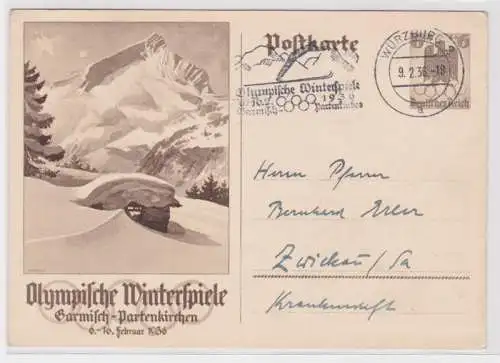 Postkarte
WÜRZBURG 2
9.2.36.-18
a
Olympische Winterspiele
6.-16.2. 1936
Garmisch- Partenkirchen
6 6
Deutsches Reich
Herrn Pfarrer
Bernhard
Zwickau/Sa
Krankenstift
Olympische Winterspiele
Garmisch-Partenkirchen
6.-16. Februar 1936